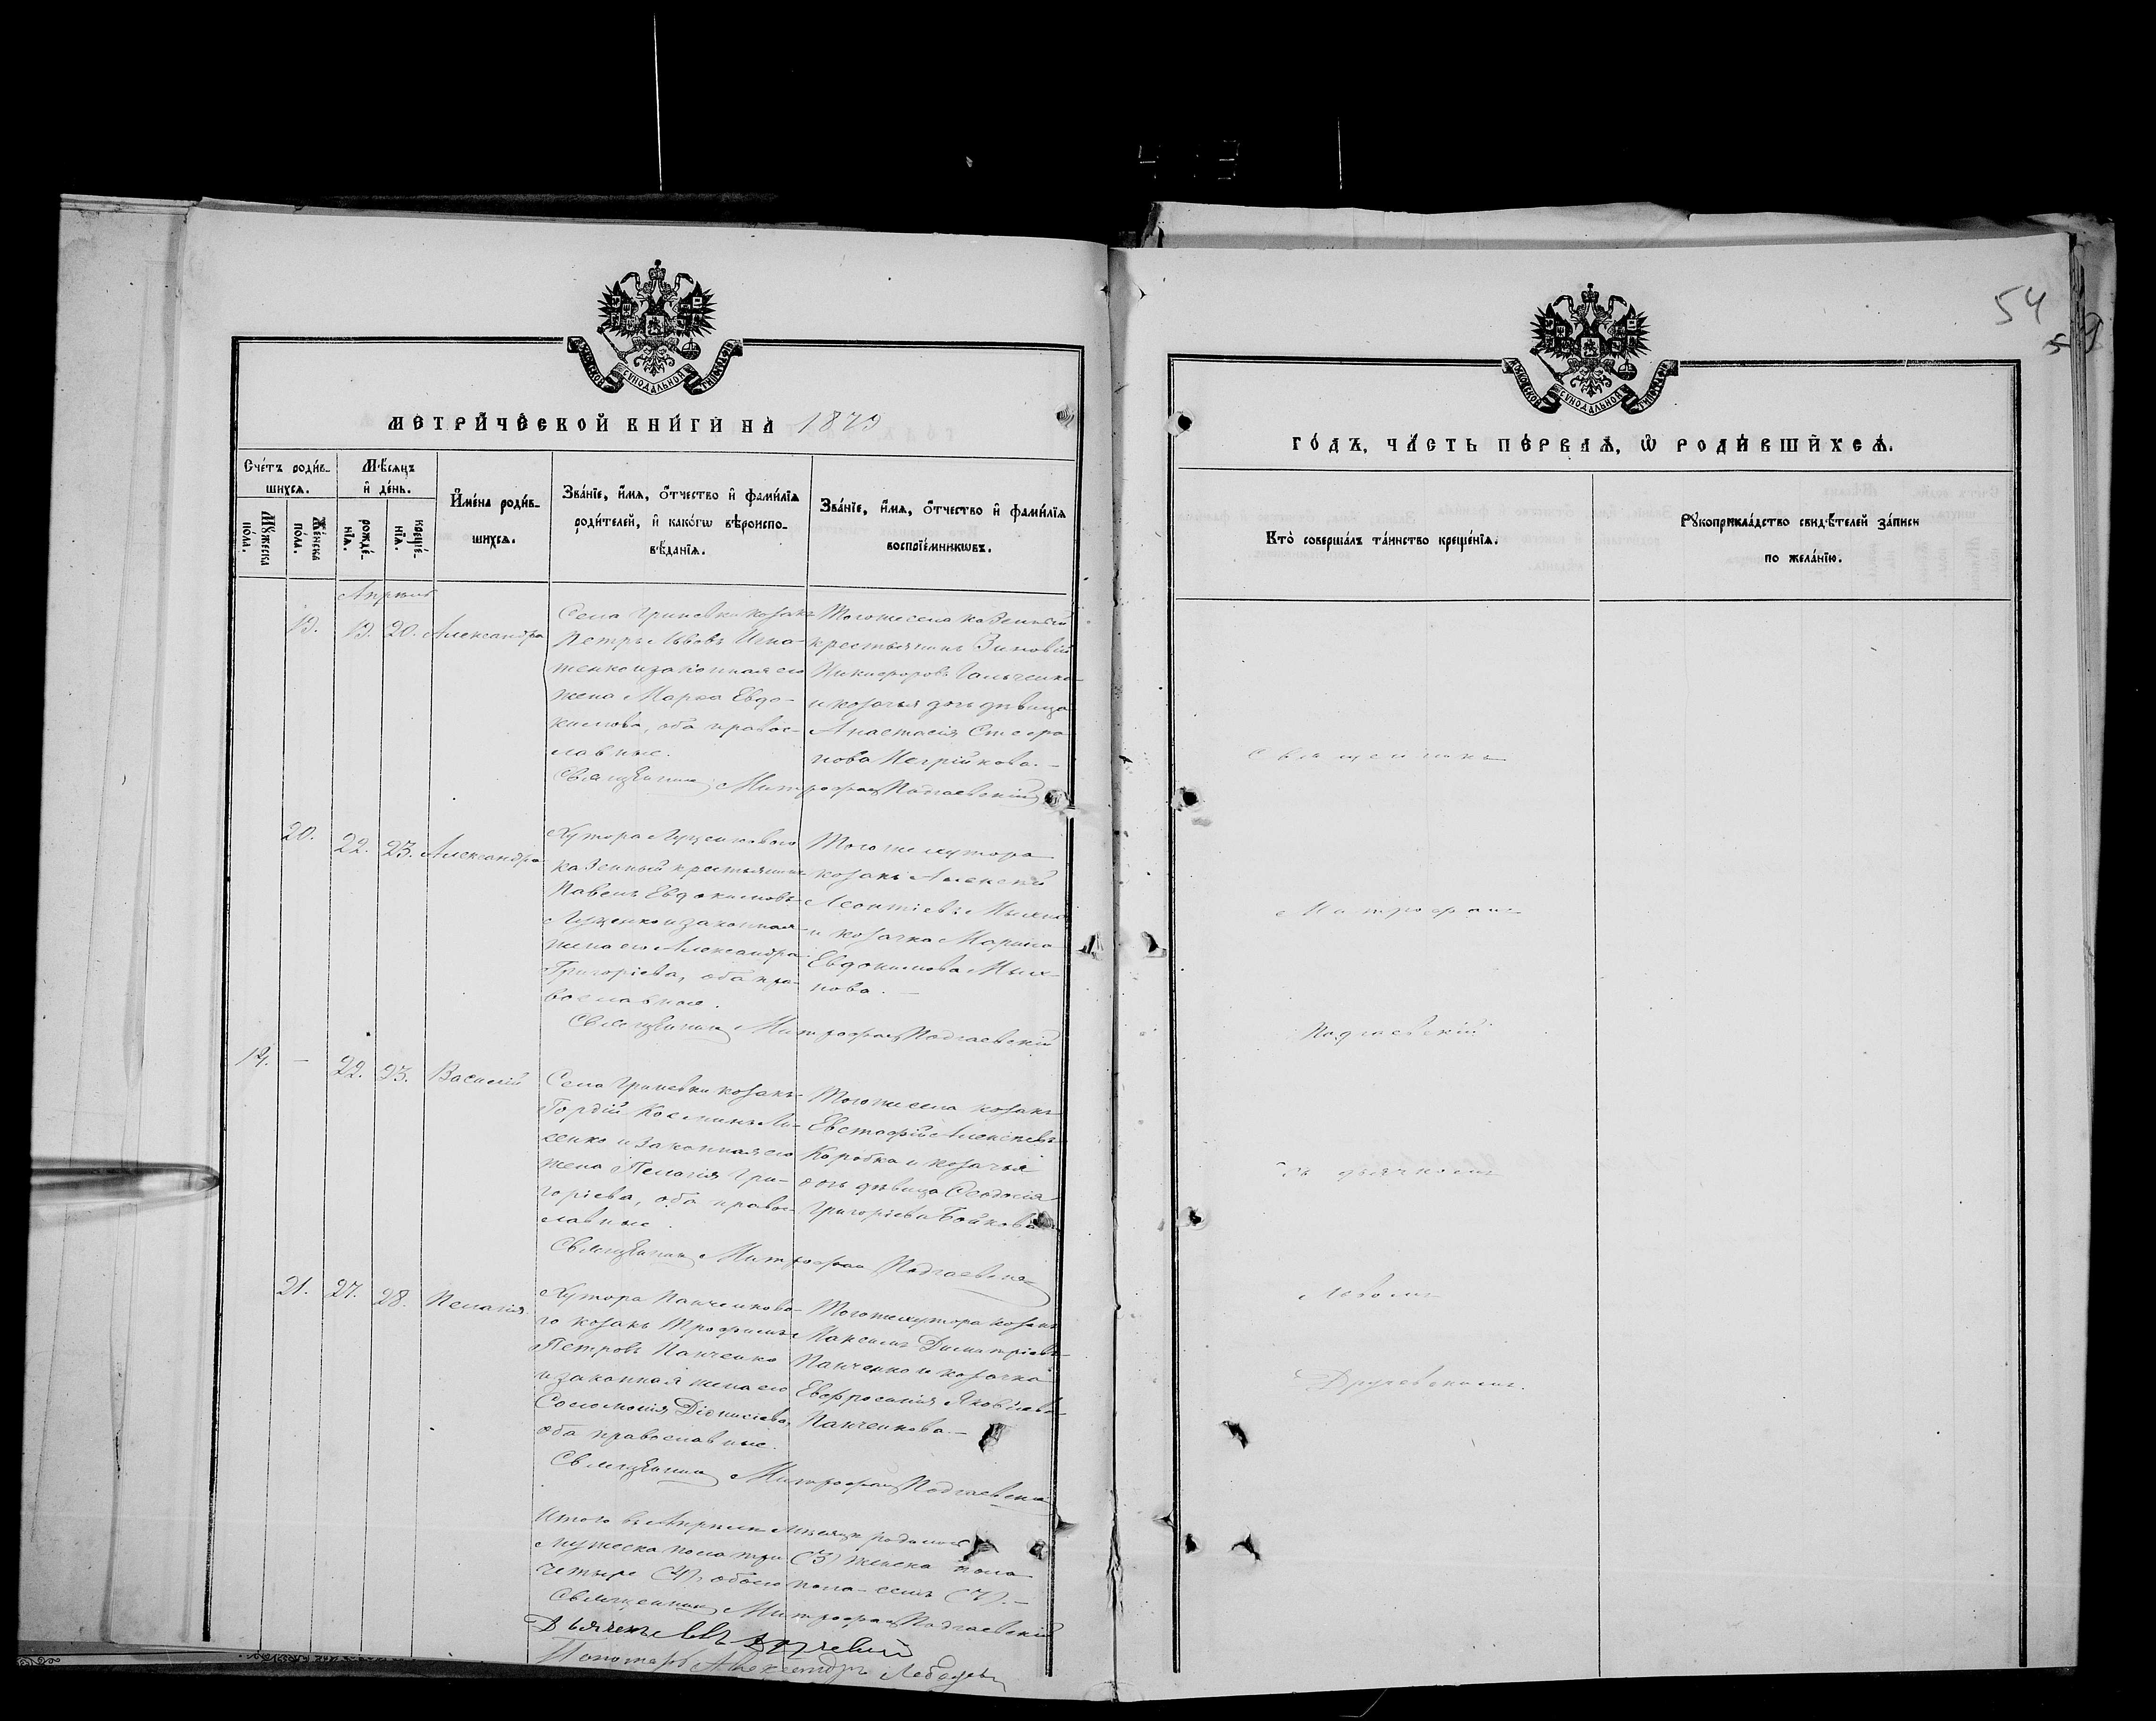 54
МЕТРИ́ЧЕСКОЙ КНИ́ГИ НА 1879
ГО́ДЪ, ЧА́СТЬ ПЕ́РВАѦ, Ѡ҆ РОДИ́ВШИХСѦ.
Сче́тъ роди́в-
шихсѧ.
Мꙋ́жеска по́ла.
Же́нска по́ла.
Мѣ́сѧцъ
и҆ де́нь.
рожде́-
нїѧ.
креще́-
нїѧ.
И҆мена̀ роди́в-
шихсѧ.
Зва́нїе, и҆́мѧ, ѻ҆́тчество и҆ фами́лїѧ
роди́телей, и҆ како́гѡ вѣроиспо-
вѣ́данїѧ.
Зва́нїе, и҆́мѧ, ѻ҆́тчество и҆ фами́лїѧ
воспрїе́мникѡвъ.
Кто̀ соверша́лъ та́инство креще́нїѧ.
Рꙋкоприкла́дство свидѣ́телей за́писи
по жела́нїю.
Апрѣль
19. 19. 20. Александра
Села Гриневки козакъ
Петръ Львовъ
и законная его
жена Марѳа Евдо-
кимова, оба правос-
лавные.
Того же села казенный
крестьянинъ Зиновій
Никифоровъ Гальченко
и козачья дочь дѣвица
Анастасія Стефа-
нова
Священникъ Митрофанъ Подгаевскій
20. 22. 23. Александра
Хутора Луценкового
казенный крестьянинъ
Павелъ Евдокимовъ
Луценко и законная
жена его Александра
Григоріева, оба пра-
вославные.
Того же хутора
козакъ Алексѣй
Леонтіевъ
и козачка Марина
Евдокимова
нова.
Священникъ Митрофанъ Подгаевскій
14. — 22. 23. Василій
Села Гриневки козакъ
Гордій Косминъ Ли-
сенко и законная его
жена Пелагія Гри-
горіева, оба правос-
лавные.
Того же села козакъ
Евстафій Алексѣевъ
Коробка и козачья
дочь дѣвица Ѳеодосія
Григоріева Бойкова
Священникъ Митрофанъ Подгаевскій
21. 27. 28. Пелагія.
Хутора Панченково-
го козакъ Трофимъ
Петровъ Панченко
и законная жена его
Соломонія Діонисіева,
оба православные.
Того же хутора козакъ
Максимъ Димитріевъ
Панченко и козачка
Евфросинія Яковлева
Панченкова.—
Священникъ Митрофанъ Подгаевскій
Итого въ Апрѣлѣ мѣсяцѣ родилось
мужеска пола три (3) женска пола
четыре (4), обоего пола — семь (7).—
Священникъ Митрофанъ Подгаевскій
Дьячекъ
Пономарь Александръ Лебедевъ
Священникъ
Митрофанъ
Подгаевскій
съ дьячкомъ
Львомъ